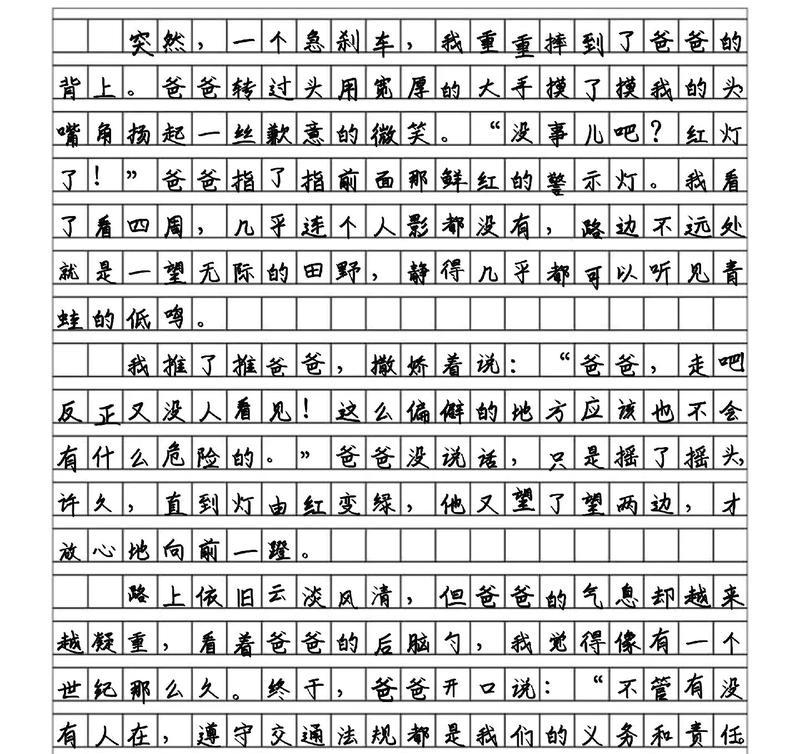 突然，一个急刹车，我重重摔到了爸爸的
背上。爸爸转过头用宽厚的大手摸了摸我的头，
嘴角扬起一丝歉意的微笑。“没事儿吧？红灯
了！”爸爸指了指前面那鲜红的警示灯。我看
了看四周，几乎连个人影都没有，路边不远处
就是一望无际的田野，静得几乎都可以听见青
蛙的低鸣。
我推了推爸爸，撒娇着说：“爸爸，走吧
反正又没人看见！这么偏僻的地方应该也不会
有什么危险的。”爸爸没说话，只是摇了摇头，
许久，直到灯由红变绿，他又望了望两边，才
放心地向前一蹬。
路上依旧云淡风清，但爸爸的气息却越来
越凝重，看着爸爸的后脑勺，我觉得像有一个
世纪那么久。终于，爸爸开口说：“不管有没
有人在，遵守交通法规都是我们的义务和责任。